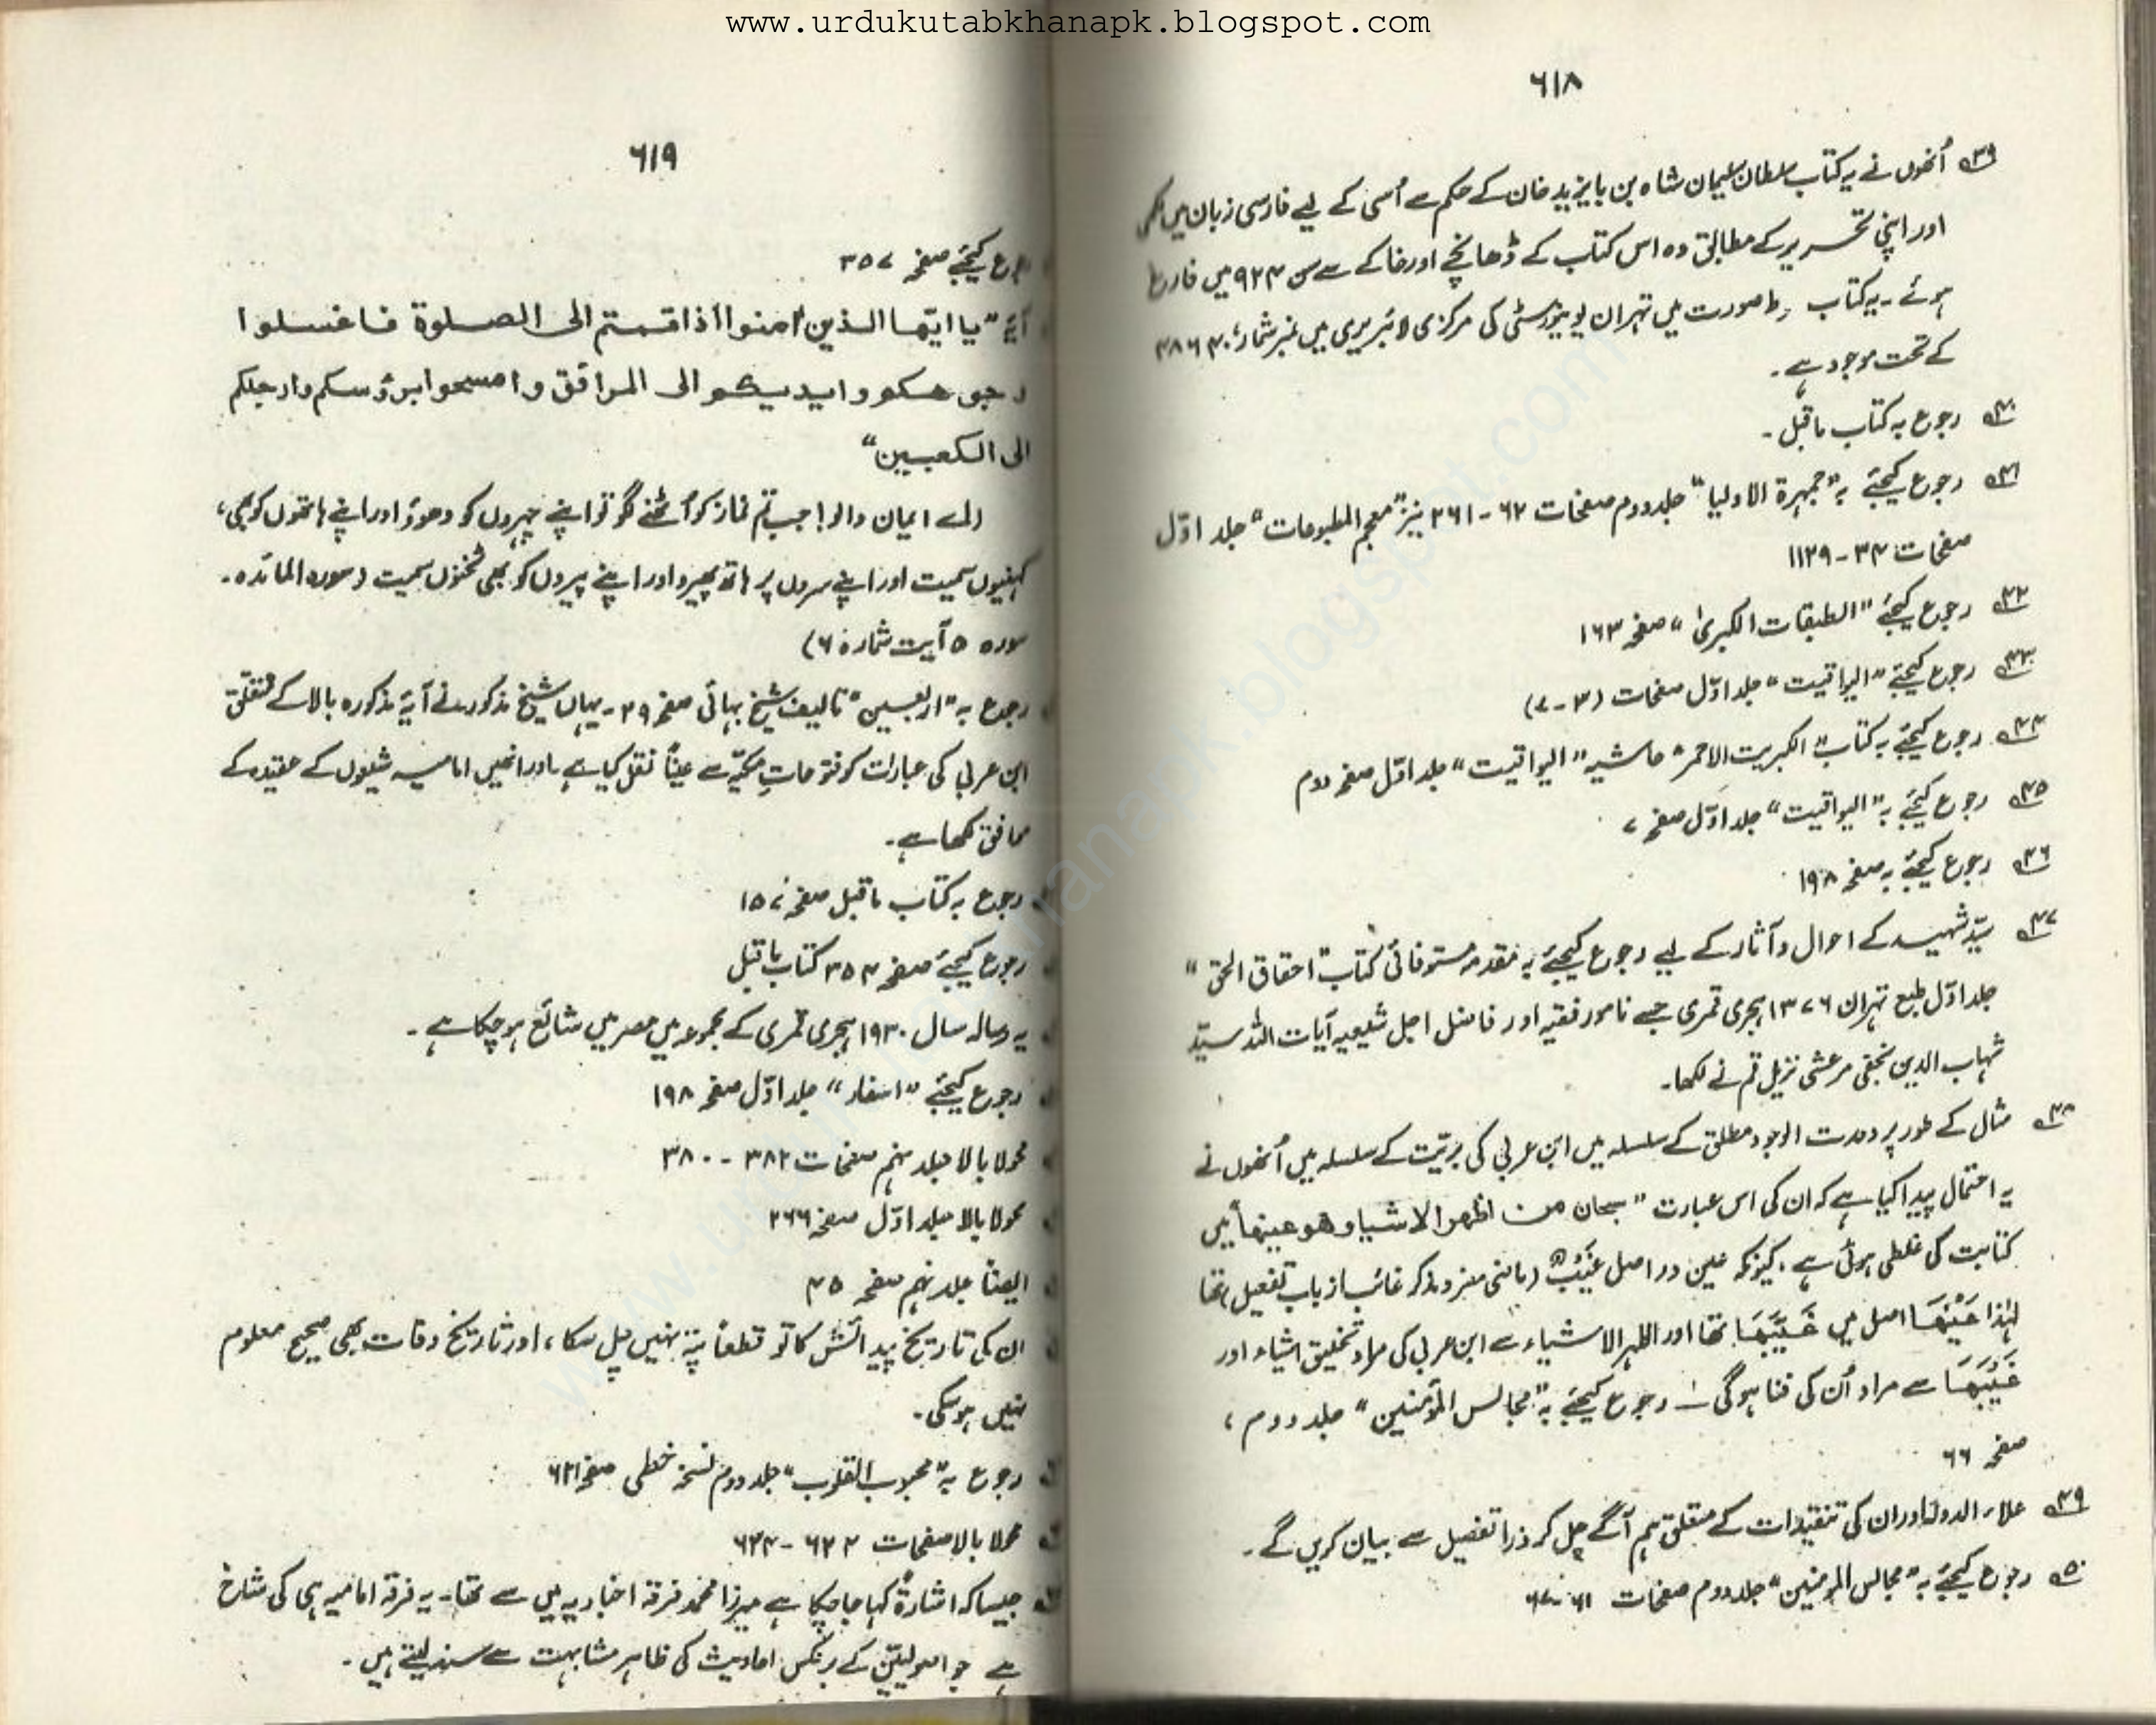 www.urdukutabkhanapk.blogspot.com
۶۱۸
۳۹ اُنھوں نے یہ کتاب سلطان سلیمان شاہ بن بایزید خان کے حکم سے اُسی کے لیے فارسی زبان میں لکھی
اور اپنی تحریر کے مطابق وہ اس کتاب کے ڈھانچے اور خاکے سے سن ۹۲۴ میں فارغ
ہوئے۔ یہ کتاب صورت میں تہران یونیورسٹی کی مرکزی لائبریری میں نمبر شمار
کے تحت موجود ہے۔
۴۰ رجوع بہ کتاب ماقبل۔
۴۱ رجوع کیجئے بہ "جمہرۃ الاولیا" جلد دوم صفحات ۶۲-۲۶۱ نیز "معجم المطبوعات" جلد اوّل
صفحات ۳۴-۱۱۲۹
۴۲ رجوع کیجئے "الطبقات الکبریٰ" صفحہ ۱۶۳
۴۳ رجوع کیجئے "الیواقیت" جلد اوّل صفحات (۳-۷)
۴۴ رجوع کیجئے بہ کتاب "الکبریت الاحمر" حاشیہ "الیواقیت" جلد اوّل صفحہ دوم
۴۵ رجوع کیجئے بہ "الیواقیت" جلد اوّل صفحہ ۷
۴۶ رجوع کیجئے بہ صفحہ ۱۹۸
۴۷ سیّد شہید کے احوال و آثار کے لیے رجوع کیجئے بہ مقدمہ مستوفائی کتاب "احقاق الحق"
جلد اوّل طبع تہران ۱۳۷۶ ہجری قمری جسے نامور فقیہ اور فاضل اجل شیعیہ آیات اللہ سیّد
شہاب الدین نجفی مرعشی نزیل قم نے لکھا۔
۴۸ مثال کے طور پر وحدت الوجود مطلق کے سلسلہ میں ابن عربی کی بریّت کے سلسلہ میں اُنھوں نے
یہ احتمال پیدا کیا ہے کہ ان کی اس عبارت "سبحان من اظہر الاشیا و ھو عینھا" میں
کتابت کی غلطی ہوئی ہے۔ کیونکہ عین در اصل غَیَّبَ (ماضی مفرد مذکر غائب از باب تفعیل) تھا
لہٰذا عَیْنَھَا اصل میں غَیَّبَھَا تھا اور اظہر الاشیاء سے ابن عربی کی مراد تخلیق اشیاء اور
غَیَّبَھَا سے مراد اُن کی فنا ہوگی۔ رجوع کیجئے بہ "مجالس المؤمنین" جلد دوم،
صفحہ ۶۶
۴۹ علاء الدولہ اور ان کی تنقیدات کے متعلق ہم آگے چل کر ذرا تفصیل سے بیان کریں گے۔
۵۰ رجوع کیجئے بہ "مجالس المومنین" جلد دوم صفحات
۶۱۹
رجوع کیجئے صفحہ ۳۵۷
آیۂ "یا ایّھا الذین اٰمنوا اذا قمتم الی الصلوٰۃ فاغسلوا
وجوھکم و ایدیکم الی المرافق و امسحوا برؤسکم و ارجلکم
الی الکعبین"
(اے ایمان والو! جب تم نماز کو اُٹھنے لگو تو اپنے چہروں کو دھوؤ اور اپنے ہاتھوں کو بھی،
کہنیوں سمیت اور اپنے سروں پر ہاتھ پھیرو اور اپنے پیروں کو بھی ٹخنوں سمیت (سورہ المائدہ۔
سورہ ۵ آیت شمارہ ۶)
رجوع بہ "اربعین" تالیف شیخ بہائی صفحہ ۲۹۔ یہاں شیخ مذکور نے آیۂ مذکورہ بالا کے متعلّق
ابن عربی کی عبارات کو فتوحاتِ مکیّہ سے عیناً نقل کیا ہے۔ اور انھیں امامیہ شیعوں کے عقیدہ کے
موافق لکھا ہے۔
رجوع بہ کتاب ماقبل صفحہ ۱۵۷
رجوع کیجئے صفحہ ۳۵۴ کتاب ماقبل
یہ رسالہ سال ۱۹۳۰ ہجری قمری کے مجموعہ میں مصر میں شائع ہو چکا ہے۔
رجوع کیجئے "اسفار" جلد اوّل صفحہ ۱۹۸
محولا بالا جلد نہم صفحات ۳۸۲-۳۸۰
محولا بالا جلد اوّل صفحہ ۲۶۶
ایضاً جلد نہم صفحہ ۴۵
ان کی تاریخ پیدائش کا تو قطعاً پتہ نہیں چل سکا، اور تاریخ وفات بھی صحیح معلوم
نہیں ہو سکی۔
رجوع بہ "محبوب القلوب" جلد دوم نسخہ خطی صفحہ ۶۲۱
محولا بالا صفحات ۶۲۲-۶۲۴
جیسا کہ اشارۃً کہا جا چکا ہے میرزا محمد فرقہ اخباریہ میں سے تھا۔ یہ فرقہ امامیہ ہی کی شاخ
ہے جو اصولیّین کے برعکس احادیث کی ظاہر مشابہت سے سند لیتے ہیں۔